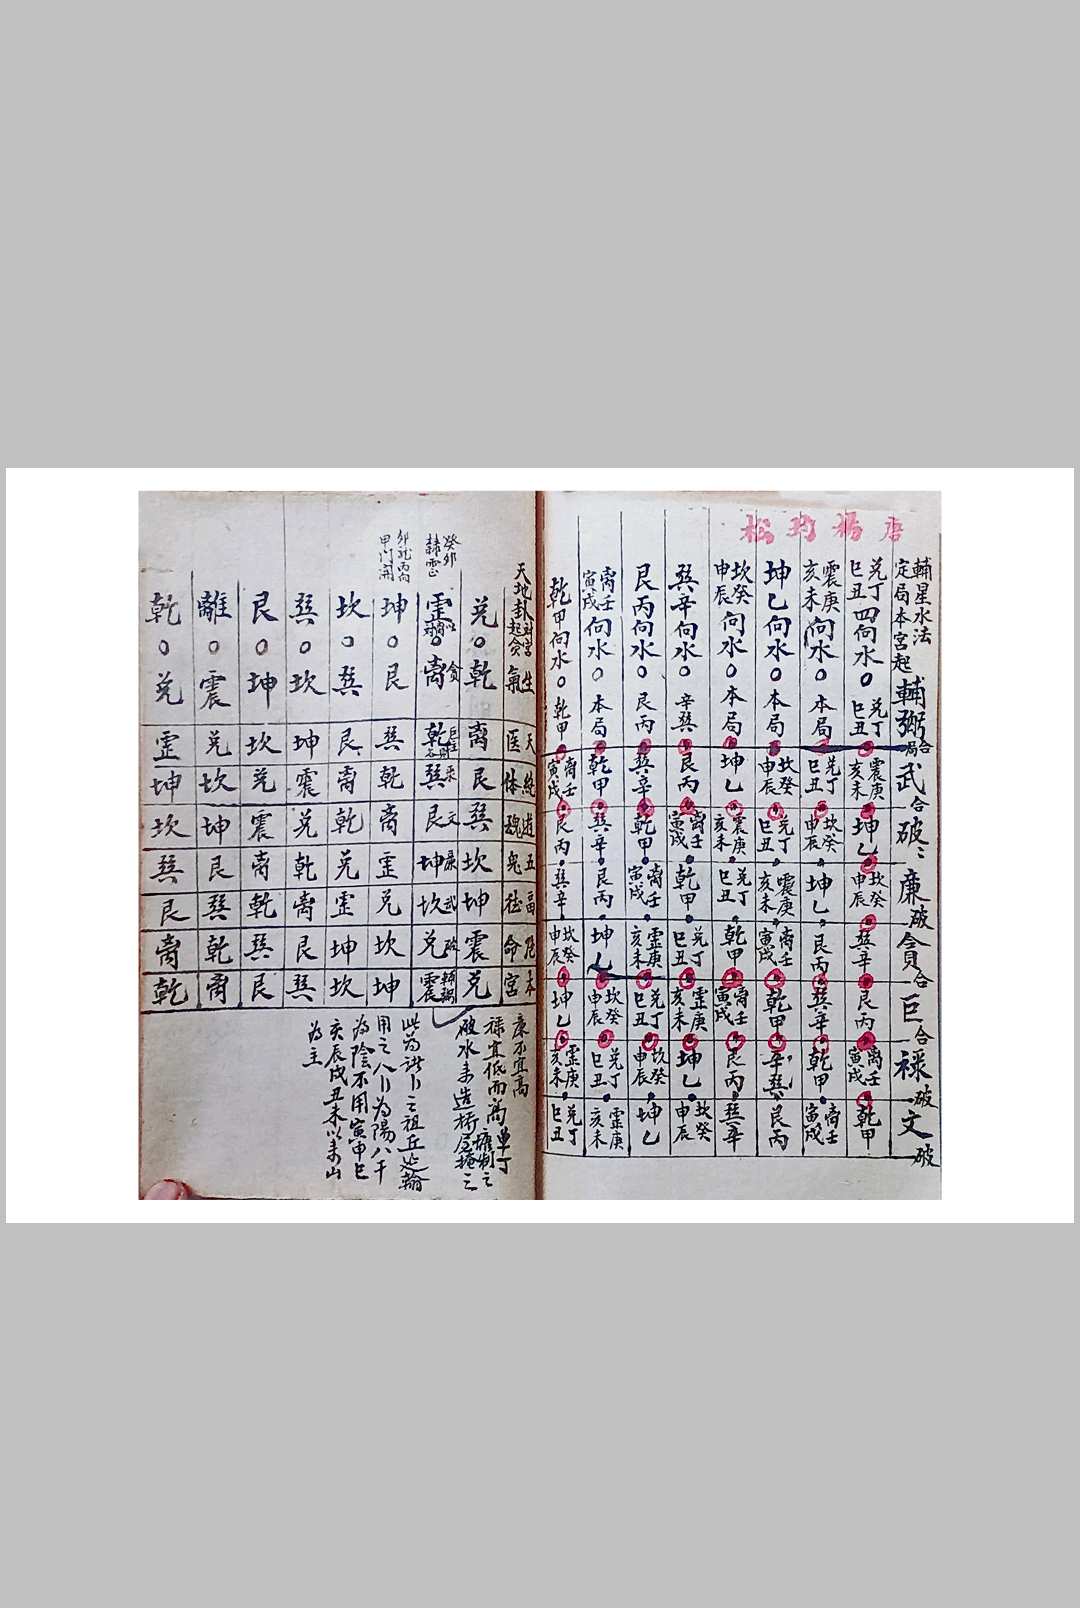 唐楊筠松
輔星水法
定局本宮起輔弼合局武合破廉破貪合巨合祿破文破
兌丁巳丑四向水○兌丁巳丑
震庚亥未
坤乙
坎癸申辰
巽辛
艮丙
離壬寅戌
乾甲
震庚亥未向水○本局
兌丁巳丑
坎癸申辰
坤乙
艮丙
巽辛
乾甲
离壬寅戌
坤乙向水○本局
坎癸申辰
兌丁巳丑
震庚亥未
离壬寅戌
乾甲
辛巽
艮丙
坎癸申辰向水○本局
坤乙
震庚亥未
兌丁巳丑
乾甲
离壬寅戌
艮丙
巽辛
巽辛向水○辛巽
艮丙
离壬寅戌
乾甲
兌丁巳丑
震庚亥未
坤乙
坎癸申辰
艮丙向水○艮丙
巽辛
乾甲
离壬寅戌
震庚亥未
兌丁巳丑
坎癸申辰
坤乙
离壬寅戌向水○本局
乾甲
巽辛
艮丙
坤乙
坎癸申辰
兌丁巳丑
震庚亥未
乾甲向水○乾甲
离壬寅戌
艮丙
巽辛
坎癸申辰
坤乙
震庚亥未
兌丁巳丑
天地卦對宮起貪
生氣
天医
絕体
遊魂
五鬼
福德
絕命
本宮
兌○乾
离
艮
巽
坎
坤
震
兌
震○离
貪
乾
巽
艮
坤
坎
兌
震
巨
祿
文
廉
武
破
輔弼
坤○艮
巽
乾
离
震
兌
坎
坤
坎○巽
艮
离
乾
兌
震
坤
坎
巽○坎
坤
震
兌
乾
离
艮
巽
艮○坤
坎
兌
震
离
乾
巽
艮
離○震
兌
坎
坤
艮
巽
乾
离
乾○兌
震
坤
坎
巽
艮
离
乾
廉不宜高
祿宜低而高單丁
破水来造桥屋掩之
此為訣卜之祖丘延翰
用之八卜為陽八干
為陰不用寅申巳
亥辰戌丑未以来山
為主